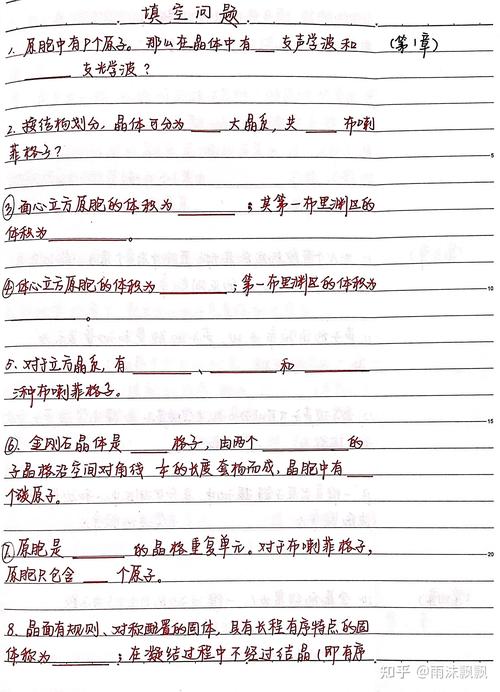 填空问题
1. 原胞中有P个原子。那么在晶体中有___支声学波和 (第1章)
____支光学波？
2. 按结构划分，晶体可分为____大晶系，共____布喇
菲格子？
③面心立方原胞的体积为________；其第一布里渊区的
体积为________。
④体心立方原胞的体积为________；第一布里渊区的体积为
________。
5. 对于立方晶系，有________、________和________
三种布喇菲格子。
⑥. 金刚石晶体是____格子，由两个________的
子晶格沿空间对角线 的长度套构而成，晶胞中有____
个碳原子。
⑦. 原胞是______的晶格重复单元。对于布喇菲格子，
原胞只包含___个原子。
8. 晶面有规则、对称配置的固体，具有长程有序特点的固
体称为______；在凝结过程中不经过结晶（即有序
5
10
15
20
知乎 @雨沫飘飘